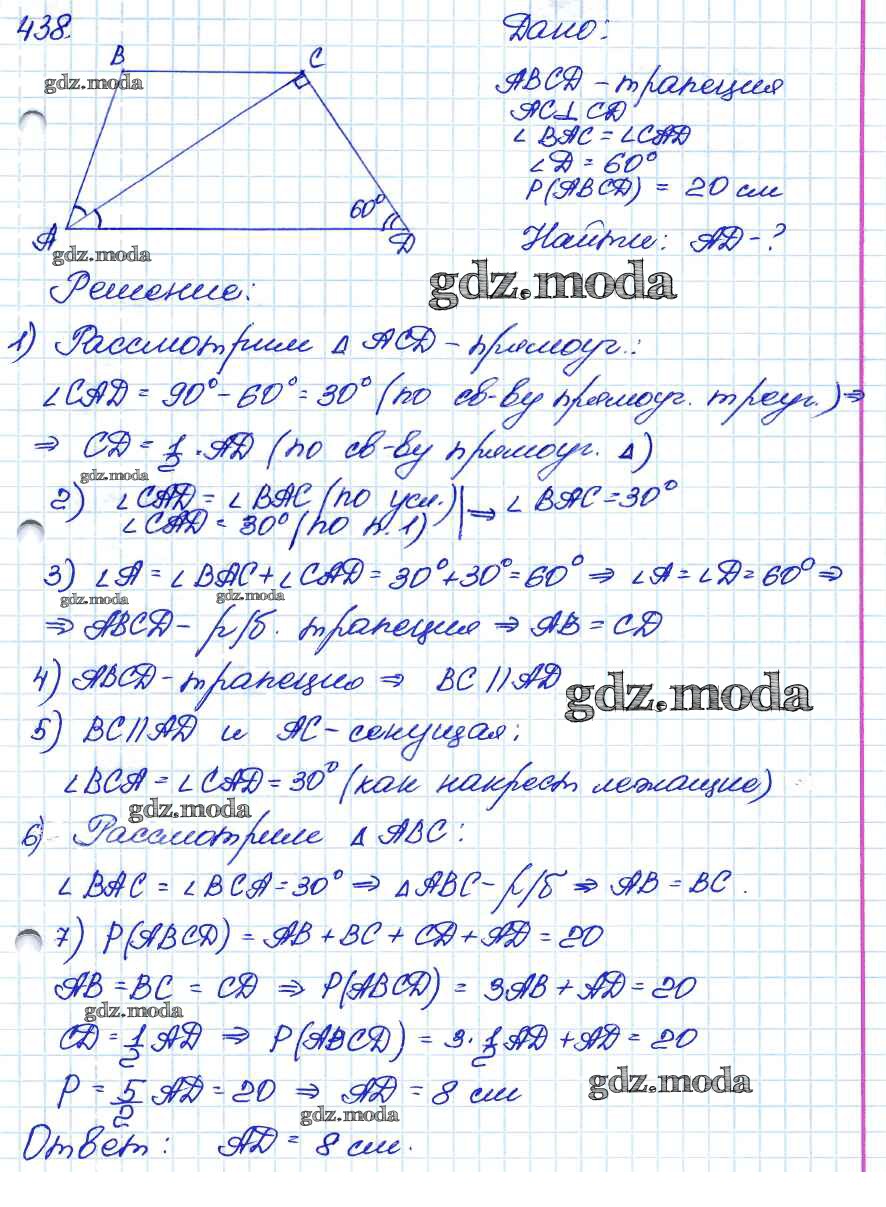 438.
Дано:
B
C
gdz.moda
ABCD - трапеция
AC⊥CD
∠BAC = ∠CAD
∠D = 60°
P(ABCD) = 20 см
60°
A
D
Найти: AD - ?
gdz.moda
gdz.moda
Решение:
1) Рассмотрим △ ACD - прямоуг.:
∠CAD = 90° - 60° = 30° (по св-ву прямоуг. треуг.) ⇒
⇒ CD = 1/2 · AD (по св-ву прямоуг. △)
gdz.moda
2) ∠CAD = ∠BAC (по усл.) | ⇒ ∠BAC = 30°
∠CAD = 30° (по п. 1)
3) ∠A = ∠BAC + ∠CAD = 30° + 30° = 60° ⇒ ∠A = ∠D = 60° ⇒
gdz.moda gdz.moda
⇒ ABCD - р/б. трапеция ⇒ AB = CD
4) ABCD - трапеция ⇒ BC || AD
gdz.moda
5) BC || AD и AC - секущая:
∠BCA = ∠CAD = 30° (как накрест лежащие)
gdz.moda
6) Рассмотрим △ ABC:
∠BAC = ∠BCA = 30° ⇒ △ABC - р/б ⇒ AB = BC.
7) P(ABCD) = AB + BC + CD + AD = 20
AB = BC = CD ⇒ P(ABCD) = 3AB + AD = 20
gdz.moda
CD = 1/2 AD ⇒ P(ABCD) = 3 · 1/2 AD + AD = 20
P = 5/2 AD = 20 ⇒ AD = 8 см
gdz.moda
gdz.moda
Ответ: AD = 8 см.